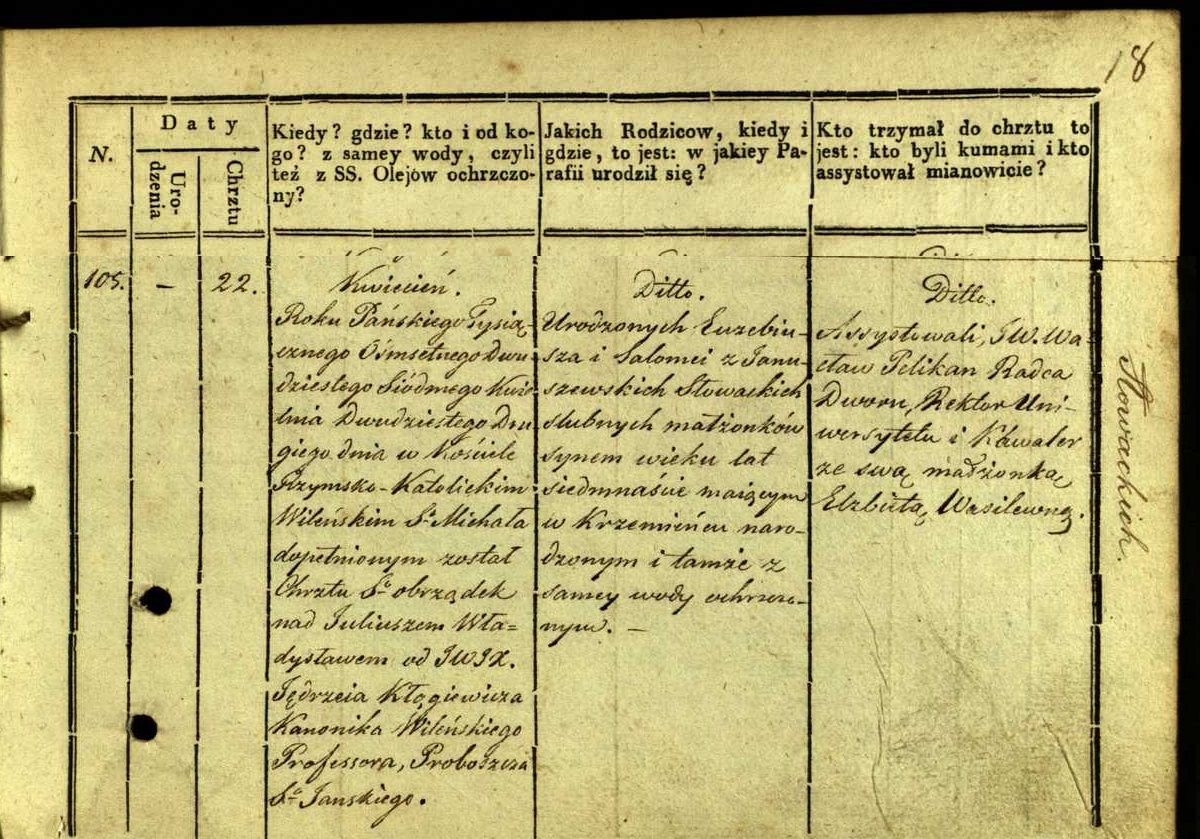 18
N.
Daty
Uro-
dzenia
Chrztu
Kiedy? gdzie? kto i od ko-
go? z samey wody, czyli
też z SS. Olejów ochrzczo-
ny?
Jakich Rodzicow, kiedy i
gdzie, to jest: w jakiey Pa-
rafii urodził się?
Kto trzymał do chrztu to
jest: kto byli kumami i kto
assystował mianowicie?
105.
—
22.
Kwiecień.
Roku Pańskiego Tysią-
cznego Ośmsetnego Dwu-
dziestego Siódmego Kwie-
tnia Dwudziestego Dru-
giego dnia w Kościele
Rzymsko-Katolickim
Wileńskim Sº Michała
dopełnionym został
Chrztu Sº obrządek
nad Juliuszem Wła=
dysławem od JWJX.
Jędrzeia Kłągiewicza
Kanonika Wileńskiego
Professora, Proboszcza
Sº Janskiego.
Ditto.
Urodzonych Euzebiu-
sza i Salomei z Janu-
szewskich Słowackich
slubnych małżonków
synem wieku lat
siedmnaście maiącym
w Krzemieńcu naro-
dzonym i tamże z
samey wody ochrzczo-
nym. —
Ditto.
Assystowali, JW. Wa-
cław Pelikan Radca
Dworu, Rektor Uni-
wersytetu i Kawaler
ze swą małżonką
Elzbietą Wasilewną.
Słowackich.